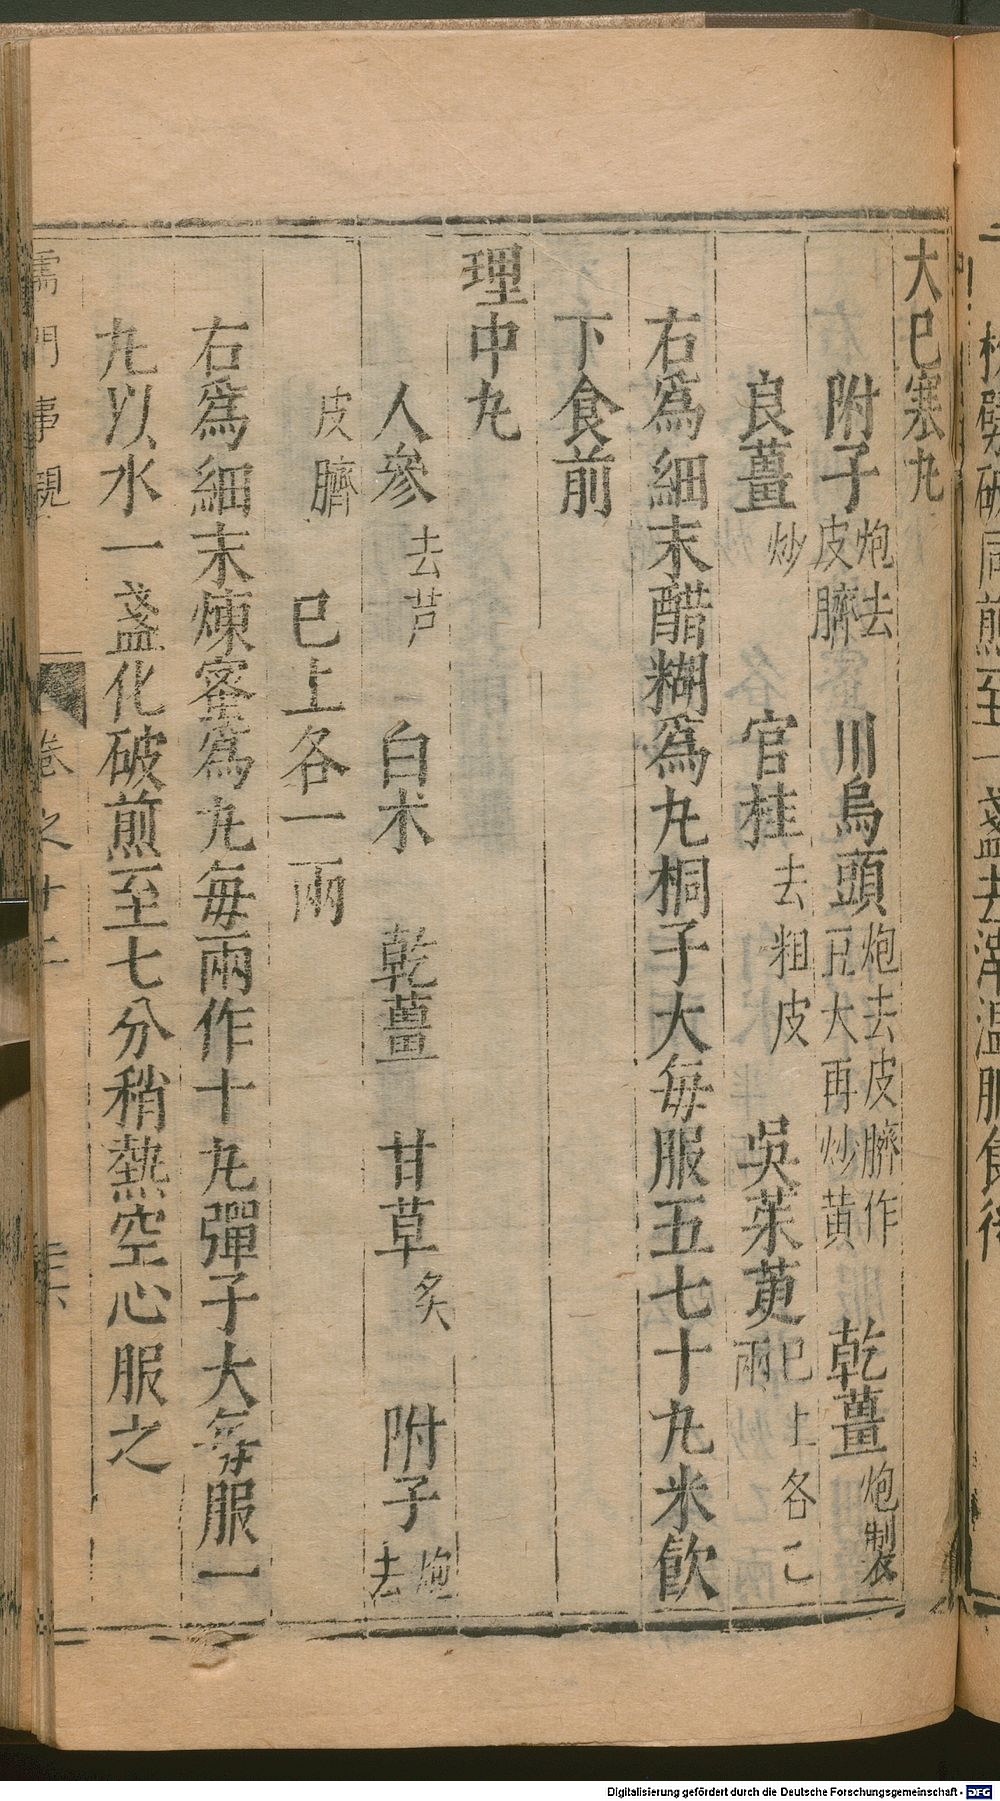 大巳寒丸
附子炮去皮臍 川烏頭炮去皮臍作豆大再炒黃 乾薑炮製
良薑炒 官桂去粗皮 吳茱萸巳上各乙兩
右爲細末醋糊爲丸桐子大每服五七十丸米飲
下食前
理中丸
人參去芦 白朮 乾薑 甘草炙 附子炮去
皮臍 巳上各一兩
右爲細末煉蜜爲丸每兩作十丸彈子大每服一
丸以水一盞化破煎至七分稍熱空心服之
儒門事親 卷之十二
破同煎至一盞去滓溫服食後
Digitalisierung gefördert durch die Deutsche Forschungsgemeinschaft - DFG